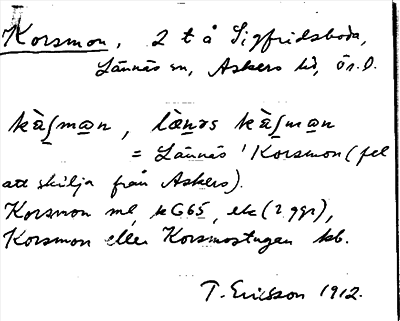 Korsmon, 2 t å Sigfridsboda,
Lännäs sn, Askers hd, Ör. l.
kàʃman, lǽnəs kàʃman
= Lännäs 'Korsmon (för
att skilja från Askers).
Korsmon ml, kG65, ek (2 ggr),
Korsmon eller Korsmostugan kb.
T. Ericsson 1912.